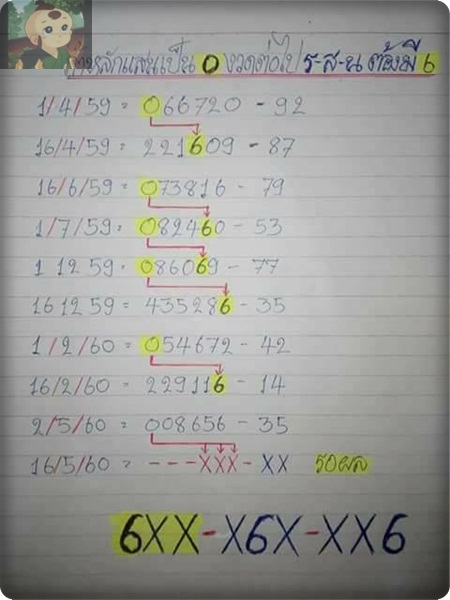 ถ้าหลักแสนเป็น 0 งวดต่อไป ร-ส-น ต้องมี 6
1/4/59 = 066720 - 92
16/4/59 = 221609 - 87
16/6/59 = 073816 - 79
1/7/59 = 082460 - 53
1 12 59 = 086069 - 77
16 12 59 = 435286 - 35
1/2/60 = 054672 - 42
16/2/60 = 229116 - 14
2/5/60 = 008656 - 35
16/5/60 = - - - XXX - XX รอผล
6XX - X6X - XX6